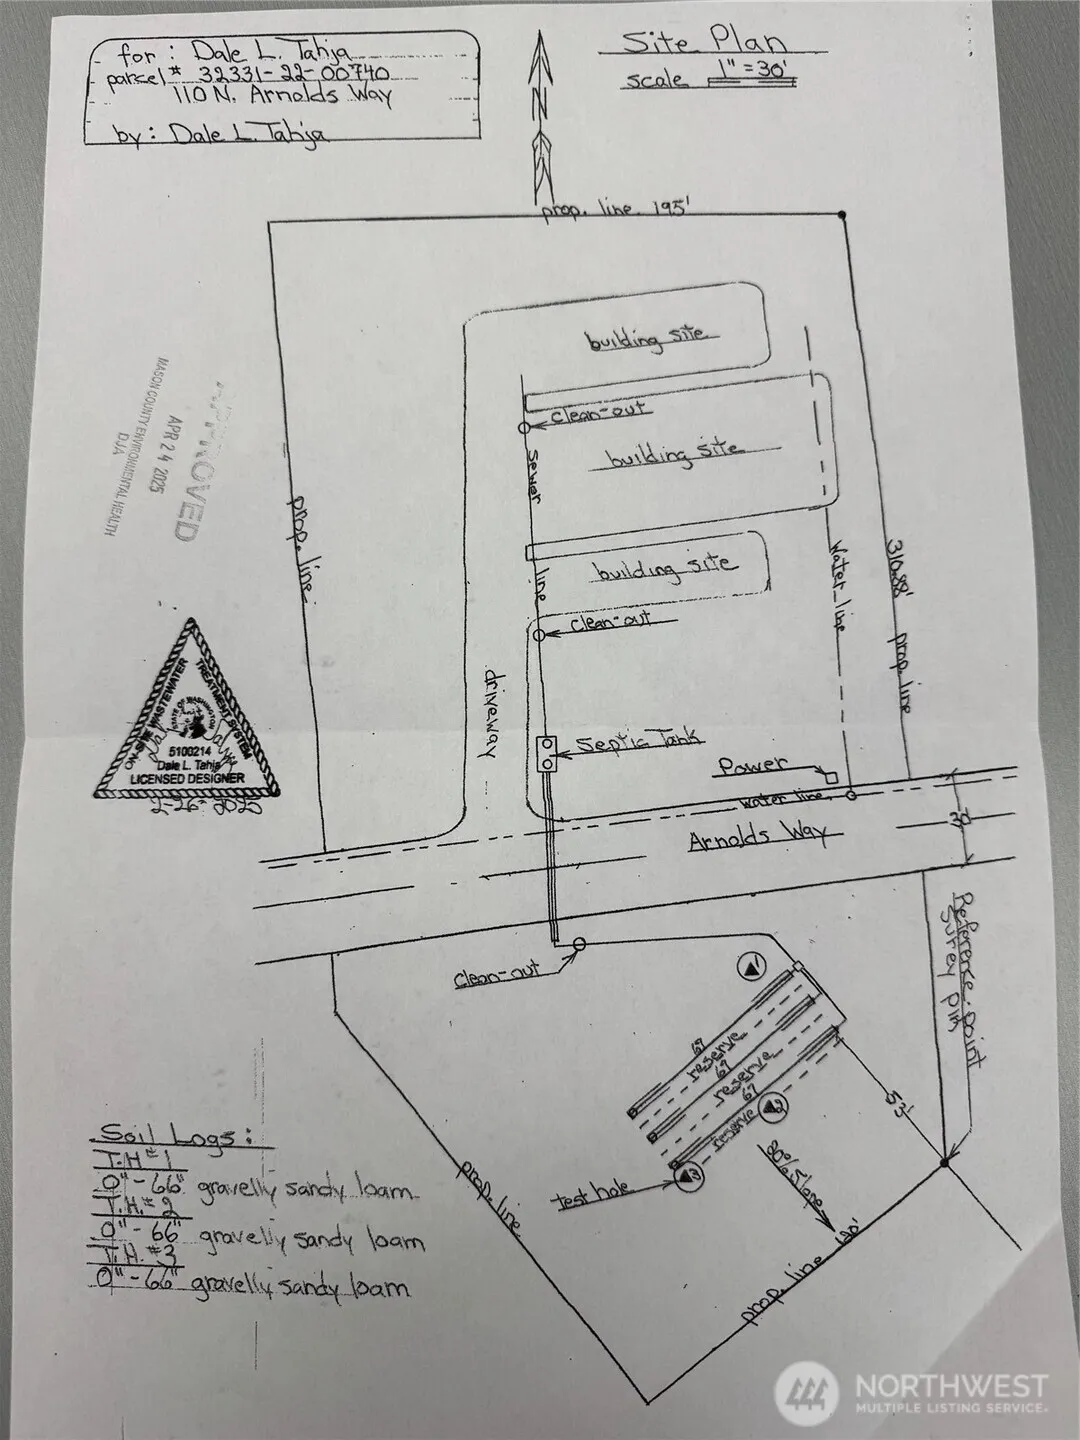 for: Dale L. Tahja
parcel # 32331-22-00740
110 N. Arnolds Way
by: Dale L. Tahja
Site Plan
scale 1" = 30'
N
prop. line 195'
building site
clean-out
building site
sewer
line
building site
clean-out
prop. line
water line
310.88' prop. line
driveway
Septic Tank
Power
water line
Arnolds Way
30'
APPROVED
APR 24 2025
MASON COUNTY ENVIRONMENTAL HEALTH
DJA
ON-SITE WASTEWATER
TREATMENT SYSTEM
STATE OF WASHINGTON
5100214
Dale L. Tahja
LICENSED DESIGNER
2-26-2025
clean-out
Reference point
survey pin
1
67
reserve
67
reserve
67
reserve
2
3
53'
test hole
20% slope
prop. line
prop. line 190'
Soil Logs:
T.H.#1
0"-66" gravelly sandy loam
T.H.#2
0"-66" gravelly sandy loam
T.H.#3
0"-66" gravelly sandy loam
NORTHWEST
MULTIPLE LISTING SERVICE